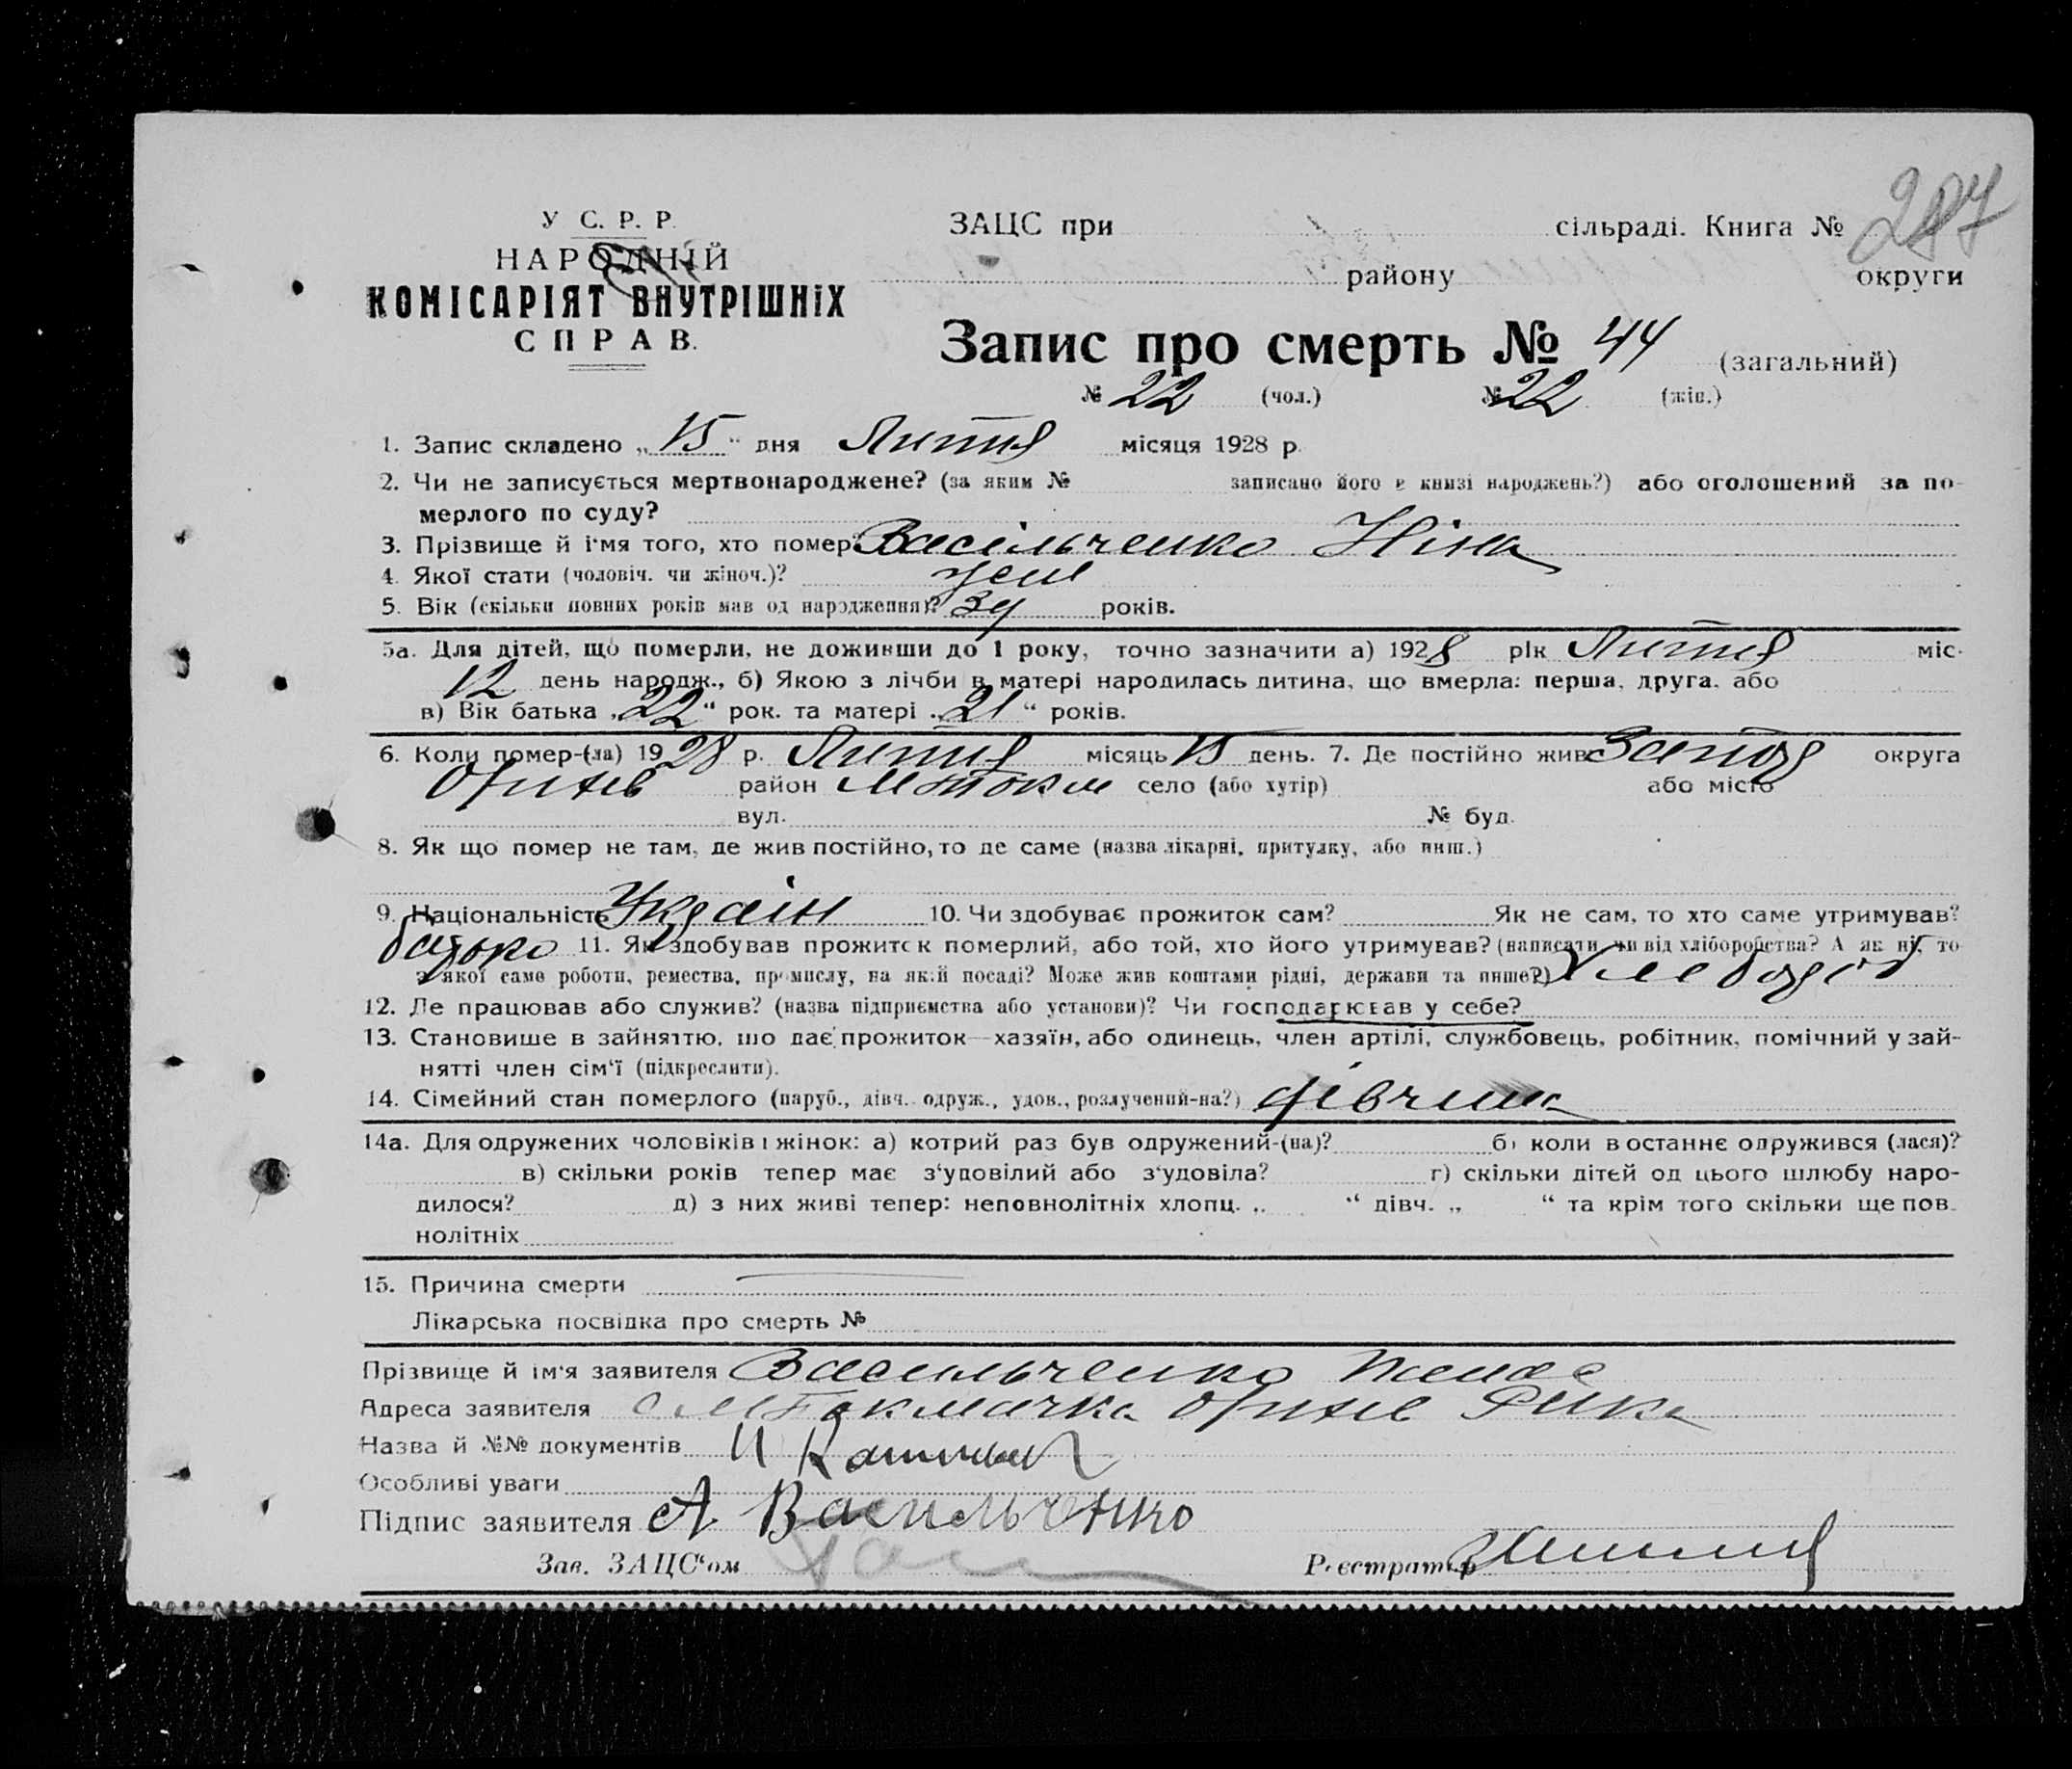 287
У С. Р. Р.
НАРОДНІЙ
КОМІСАРІЯТ ВНУТРІШНІХ
СПРАВ.
ЗАЦС при сільраді. Книга №
району округи
Запис про смерть № 44 (загальний)
№ 22 (чол.) № 22 (жін.)
1. Запис складено „15“ дня Липня місяця 1928 р.
2. Чи не записується мертвонароджене? (за яким № записано його в книзі народжень?) або оголошений за по-
мерлого по суду?
3. Прізвище й ім'я того, хто помер? Васільченко Ніна
4. Якої стати (чоловіч. чи жіноч.)? жен
5. Вік (скільки повних років мав од народження)? 3 років.
5а. Для дітей, що померли, не доживши до 1 року, точно зазначити а) 1928 рік Липня міс.
12 день народж., б) Якою з лічби в матері народилась дитина, що вмерла: перша, друга, або
в) Вік батька „22“ рок. та матері „21“ років.
6. Коли помер-(ла) 1928 р. Липня місяць 15 день. 7. Де постійно жив Запоз округа
Оріхів район М Токм село (або хутір) або місто
вул. № буд.
8. Як що помер не там, де жив постійно, то де саме (назва лікарні, притулку, або инш.)
9. Національність Україн 10. Чи здобуває прожиток сам? Як не сам, то хто саме утримував?
батько 11. Як здобував прожиток померлий, або той, хто його утримував? (написати чи від хліборобства? А як ні, то
з якої саме роботи, ремества, промислу, на якій посаді? Може жив коштами рідні, держави та инше?)
12. Де працював або служив? (назва підприємства або установи)? Чи господарював у себе?
13. Становище в зайняттю, що дає прожиток—хазяїн, або одинець, член артілі, службовець, робітник, помічний у зай-
нятті член сім'ї (підкреслити).
14. Сімейний стан померлого (паруб., дівч. одруж., удов., розлучений-на?) дівчина
14а. Для одружених чоловіків і жінок: а) котрий раз був одружений-(на)? б) коли в останнє одружився (лася)?
в) скільки років тепер має з'удовілий або з'удовіла? г) скільки дітей од цього шлюбу наро-
дилося? д) з них живі тепер: неповнолітніх хлопц. „ “ дівч. „ “ та крім того скільки ще пов-
нолітніх
15. Причина смерти
Лікарська посвідка про смерть №
Прізвище й ім'я заявителя Васильченко
Адреса заявителя с М Токмачка Оріхів Р-ика
Назва й №№ документів
Особливі уваги
Підпис заявителя А Васильченко
Зав. ЗАЦС'ом Реєстратор